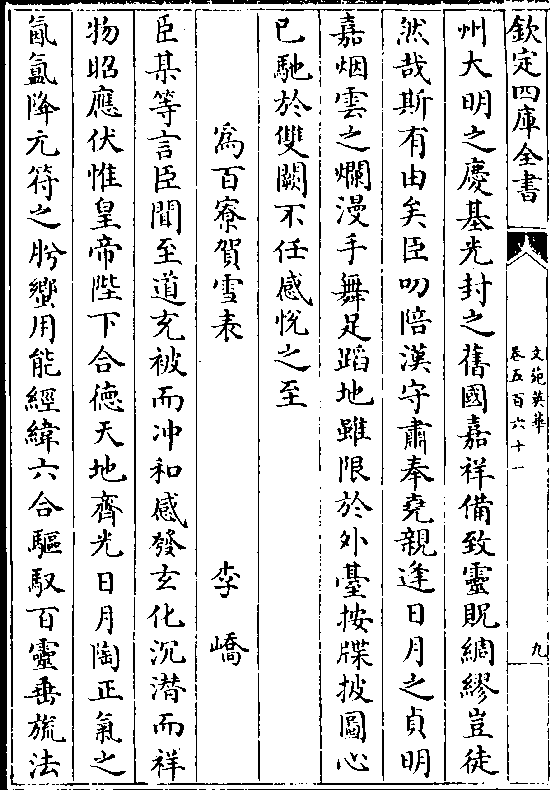 欽定四庫全書
文苑英華
卷五百六十一
九
州大明之慶基光封之舊國嘉祥備致靈貺綢繆豈徒
然哉斯有由矣臣叨陪漢守肅奉堯親逢日月之貞明
嘉烟雲之爛漫手舞足蹈地雖限於外臺按牒披圖心
已馳於雙闕不任感悅之至
爲百寮賀雪表 李嶠
臣某等言臣聞至道充被而沖和感發玄化沉潛而祥
物昭應伏惟皇帝陛下合德天地齊光日月陶正氣之
氤氳降元符之肹蠁用能經緯六合驅馭百靈垂旒法